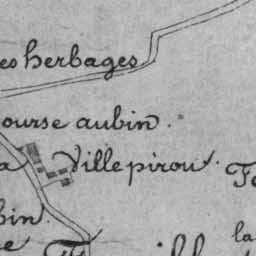 es herbages
ourse aubin.
a Ville pirou.
bin.
la